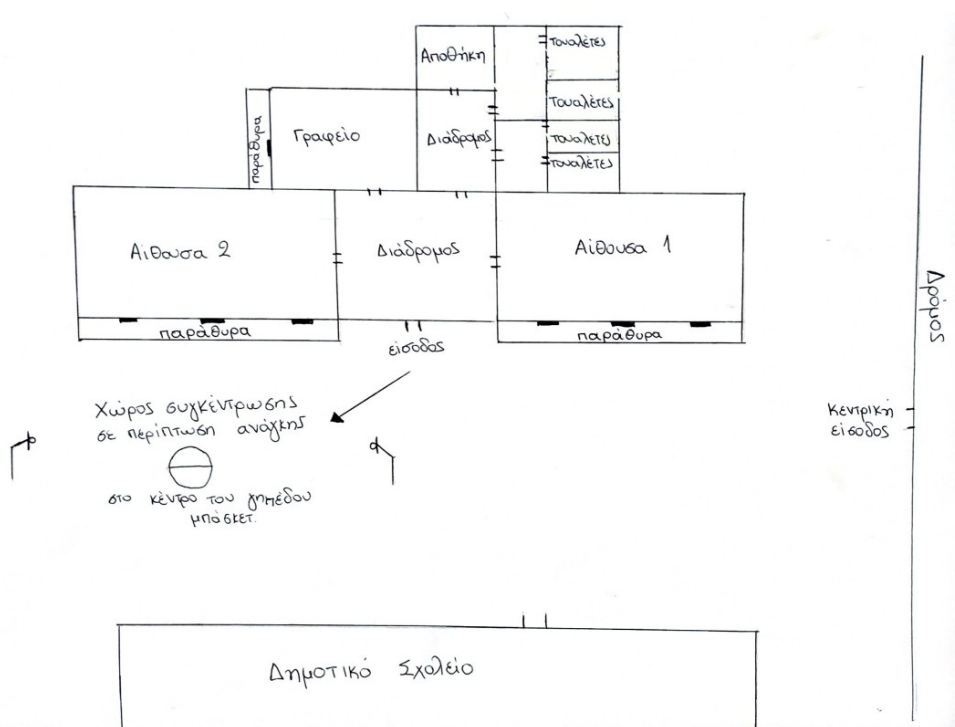 Αποθήκη
τουαλέτες
τουαλέτες
τουαλέτες
τουαλέτες
παράθυρα
Γραφείο
Διάδρομος
Αίθουσα 2
Διάδρομος
Αίθουσα 1
παράθυρα
είσοδος
παράθυρα
Δρόμος
Χώρος συγκέντρωσης
σε περίπτωση ανάγκης
στο κέντρο του γηπέδου
μπάσκετ.
Κεντρική
είσοδος
Δημοτικό Σχολείο